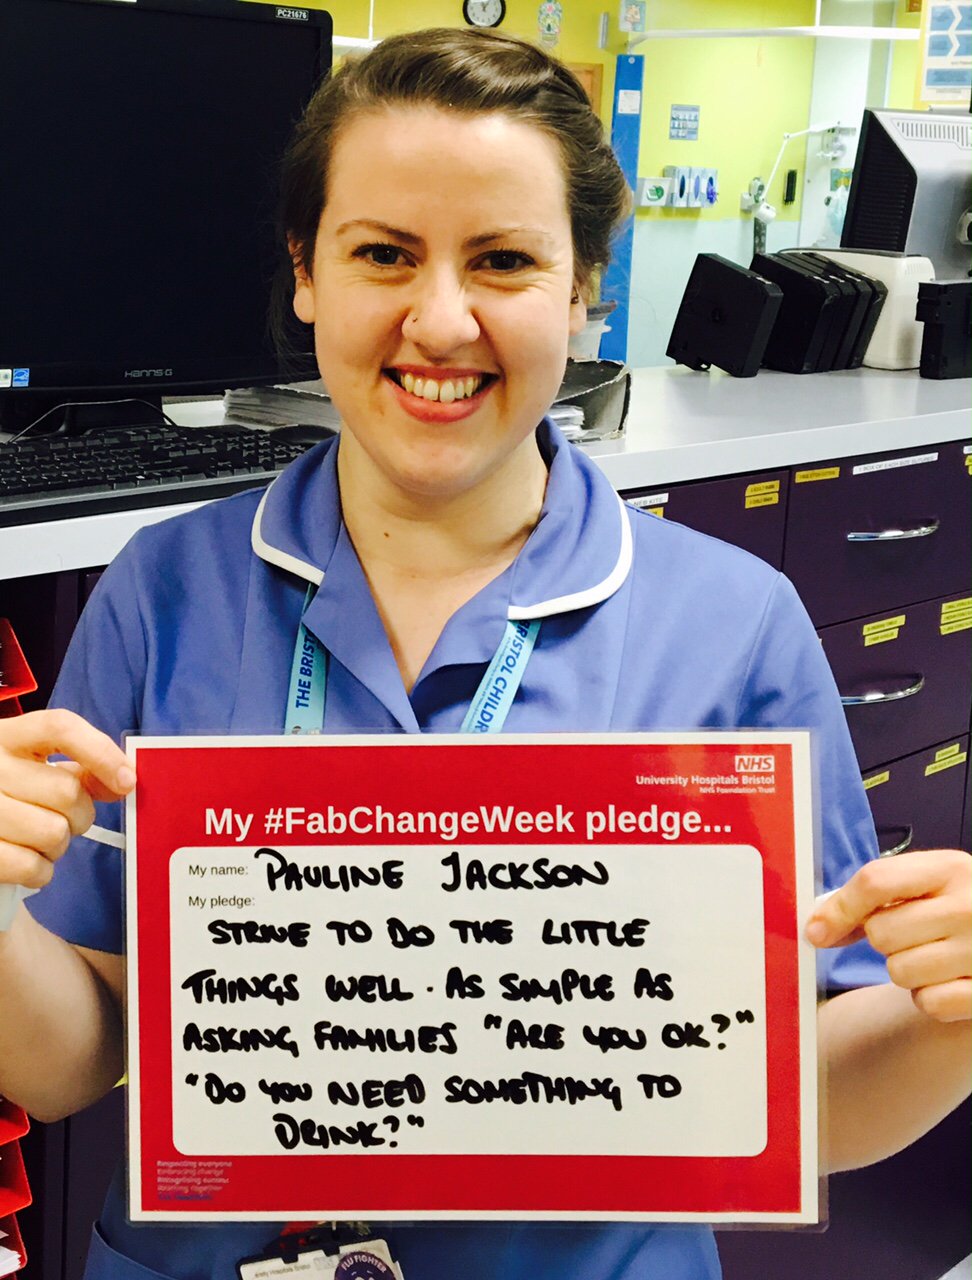 PC21676
HANNS G
THE BRIST
BRISTOL CHILDR
NHS
University Hospitals Bristol
NHS Foundation Trust
My #FabChangeWeek pledge...
My name: PAULINE JACKSON
My pledge:
STRIVE TO DO THE LITTLE
THINGS WELL. AS SIMPLE AS
ASKING FAMILIES "ARE YOU OK?"
"DO YOU NEED SOMETHING TO
DRINK?"
Respecting everyone
Embracing change
Recognising success
Working together
FLU FIGHTER